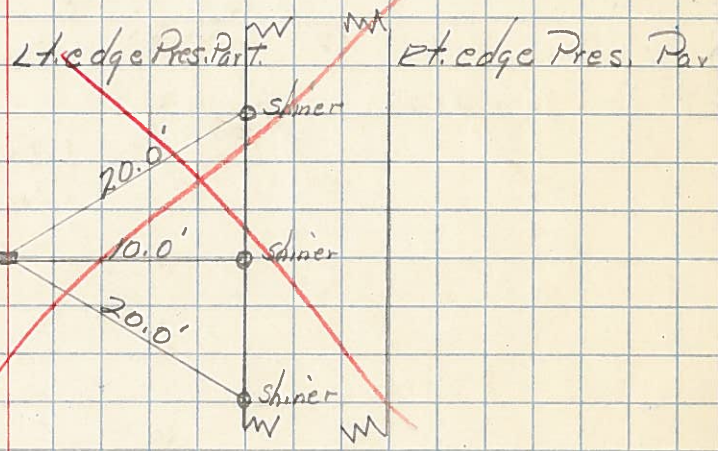 Lt. edge Pres. Pav't.
Rt. edge Pres. Pav
Shiner
20.0'
10.0'
Shiner
20.0'
Shiner